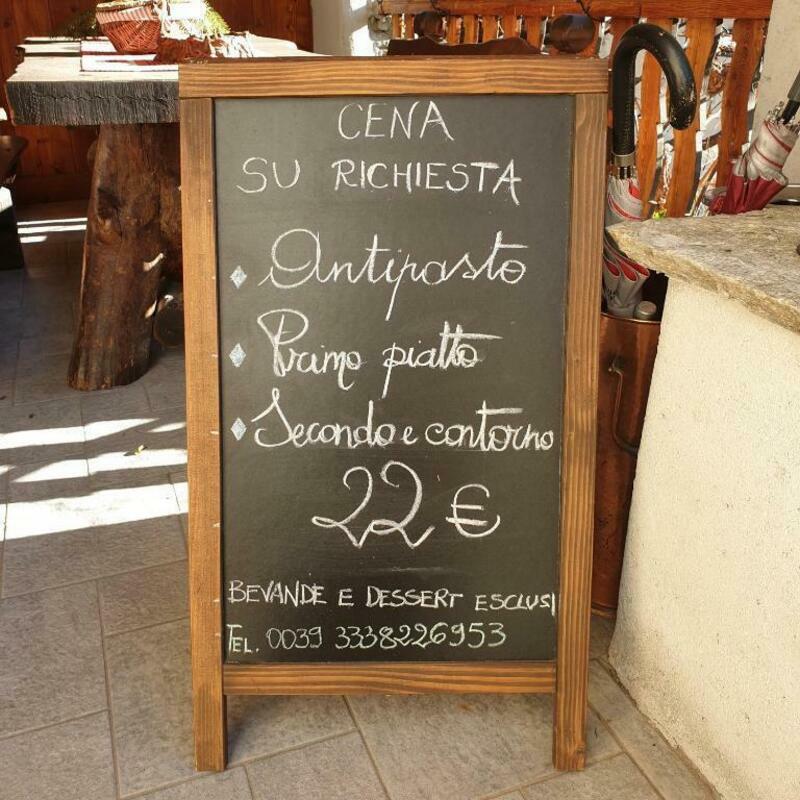 CENA
SU RICHIESTA
Antipasto
Primo piatto
Secondo e contorno
22 €
BEVANDE E DESSERT ESCLUSI
TEL. 0039 3338226953